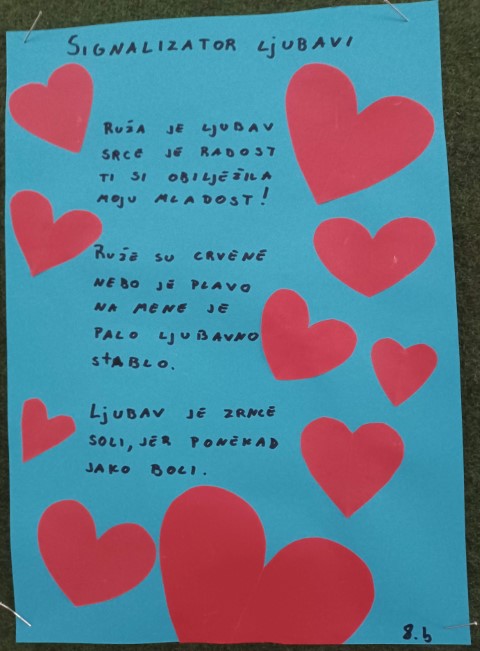 SIGNALIZATOR LJUBAVI
RUŽA JE LJUBAV
SRCE JE RADOST
TI SI OBILJEŽILA
MOJU MLADOST!
RUŽE SU CRVENE
NEBO JE PLAVO
NA MENE JE
PALO LJUBAVNO
STABLO.
LJUBAV JE ZRNCE
SOLI, JER PONEKAD
JAKO BOLI.
8.b